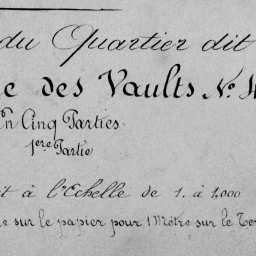 du Quartier dit
e des Vaults No.
En Cinq Parties
1ere Partie
t à l'Echelle de 1. à 1,000
e sur le papier pour 1 Mètre sur le Te